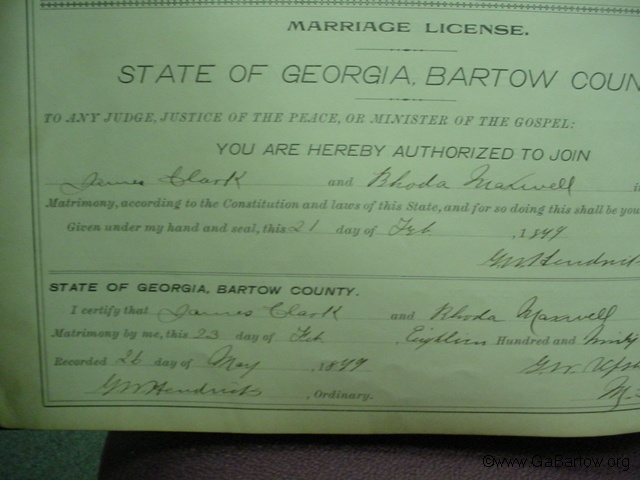 MARRIAGE LICENSE.
STATE OF GEORGIA, BARTOW COUN
TO ANY JUDGE, JUSTICE OF THE PEACE, OR MINISTER OF THE GOSPEL:
YOU ARE HEREBY AUTHORIZED TO JOIN
James Clark and Rhoda Maxwell
Matrimony, according to the Constitution and laws of this State, and for so doing this shall be you
Given under my hand and seal, this 21 day of Feb , 1899
GW Hendrick
STATE OF GEORGIA, BARTOW COUNTY.
I certify that James Clark and Rhoda Maxwell
Matrimony by me, this 23 day of Feb , Eighteen Hundred and Ninety
Recorded 26 day of May , 1899 G.W.
GW Hendricks , Ordinary. M.
©www.GaBartow.org